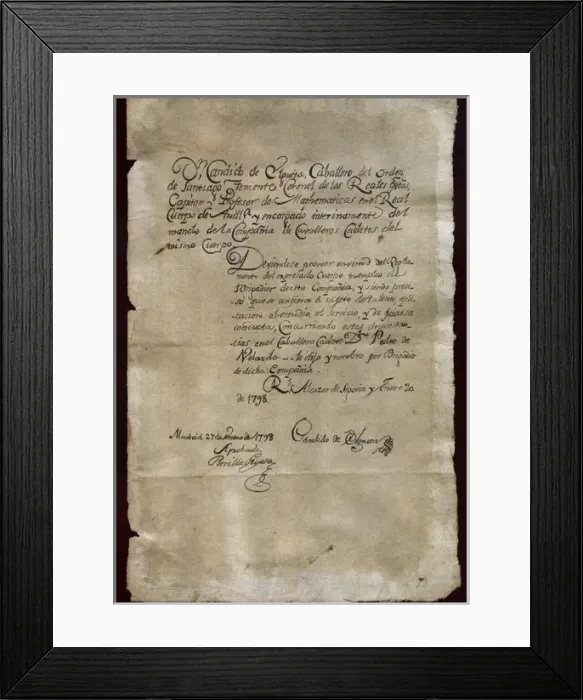 Dn. Candido de Elgueta, Caballero del orden
de Santiago, Teniente Coronel de los Reales Extos,
Capitan y Profesor de Mathematicas en el Real
Cuerpo de Artilla. y encargado interinamente del
mando de la Compañia de Cavalleros Cadetes del
mismo Cuerpo
Deviendose proveer en virtud del Regla-
mento del expresado Cuerpo el empleo de
Brigadier de esta Compañia, y siendo preci-
so que se confiera à sujeto de talento, apli-
cacion al estudio, al servicio, y de juiciosa
conducta, Concurriendo estas circunstan-
cias en el Caballero Cadete Dn. Pedro de
Velarde le elijo y nombro por Brigadier
de dicha Compañia.
Rl. Alcazar de Segovia y Enero 20
de 1798.
Madrid 27 de Enero de 1798 Candido de Elgueta
Aprobado